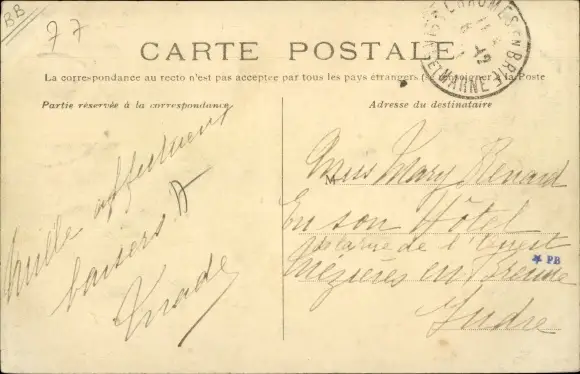 BB
77
CARTE POSTALE
La correspondance au recto n'est pas acceptée par tous les pays étrangers (se renseigner à la Poste
Partie réservée à la correspondance
Adresse du destinataire
Mille affectueux
baisers A
M
Mary Renard
En son Hôtel
de l'Ouest
Mézières en Brenne
Indre
★ PB
EN BRIE
ET MARNE
12